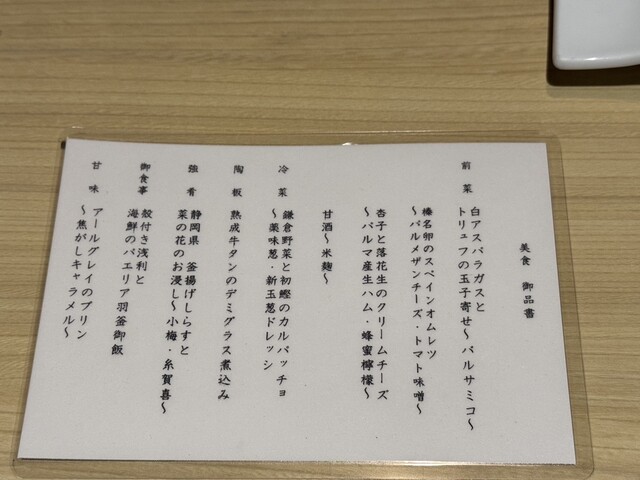 美食 御品書
前菜
白アスパラガスと
トリュフの玉子寄せ～バルサミコ～
榛名卵のスペインオムレツ
～パルメザンチーズ・トマト味噌～
杏子と落花生のクリームチーズ
～パルマ産生ハム・蜂蜜檸檬～
甘酒～米麹～
冷菜
鎌倉野菜と初鰹のカルパッチョ
～薬味葱・新玉葱ドレッシ
陶板
熟成牛タンのデミグラス煮込み
強肴
静岡県 釜揚げしらすと
菜の花のお浸し～小梅・糸賀喜～
御食事
殻付き浅利と
海鮮のパエリア羽釜御飯
甘味
アールグレイのプリン
～焦がしキャラメル～